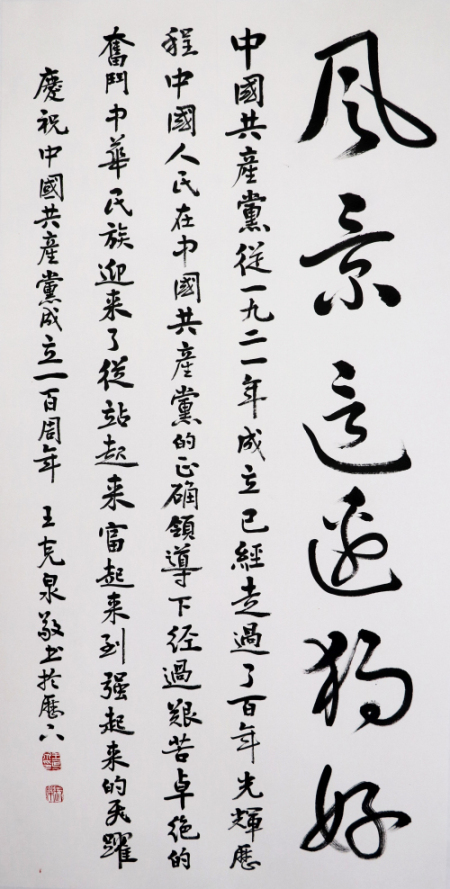 風景這邊獨好
中國共產黨從一九二一年成立已經走過了百年光輝歷
程中國人民在中國共產黨的正确領導下経過艱苦卓绝的
奮鬥中華民族迎来了從站起来富起来到强起来的飛躍
慶祝中國共產黨成立一百周年 王克泉敬书於歷下